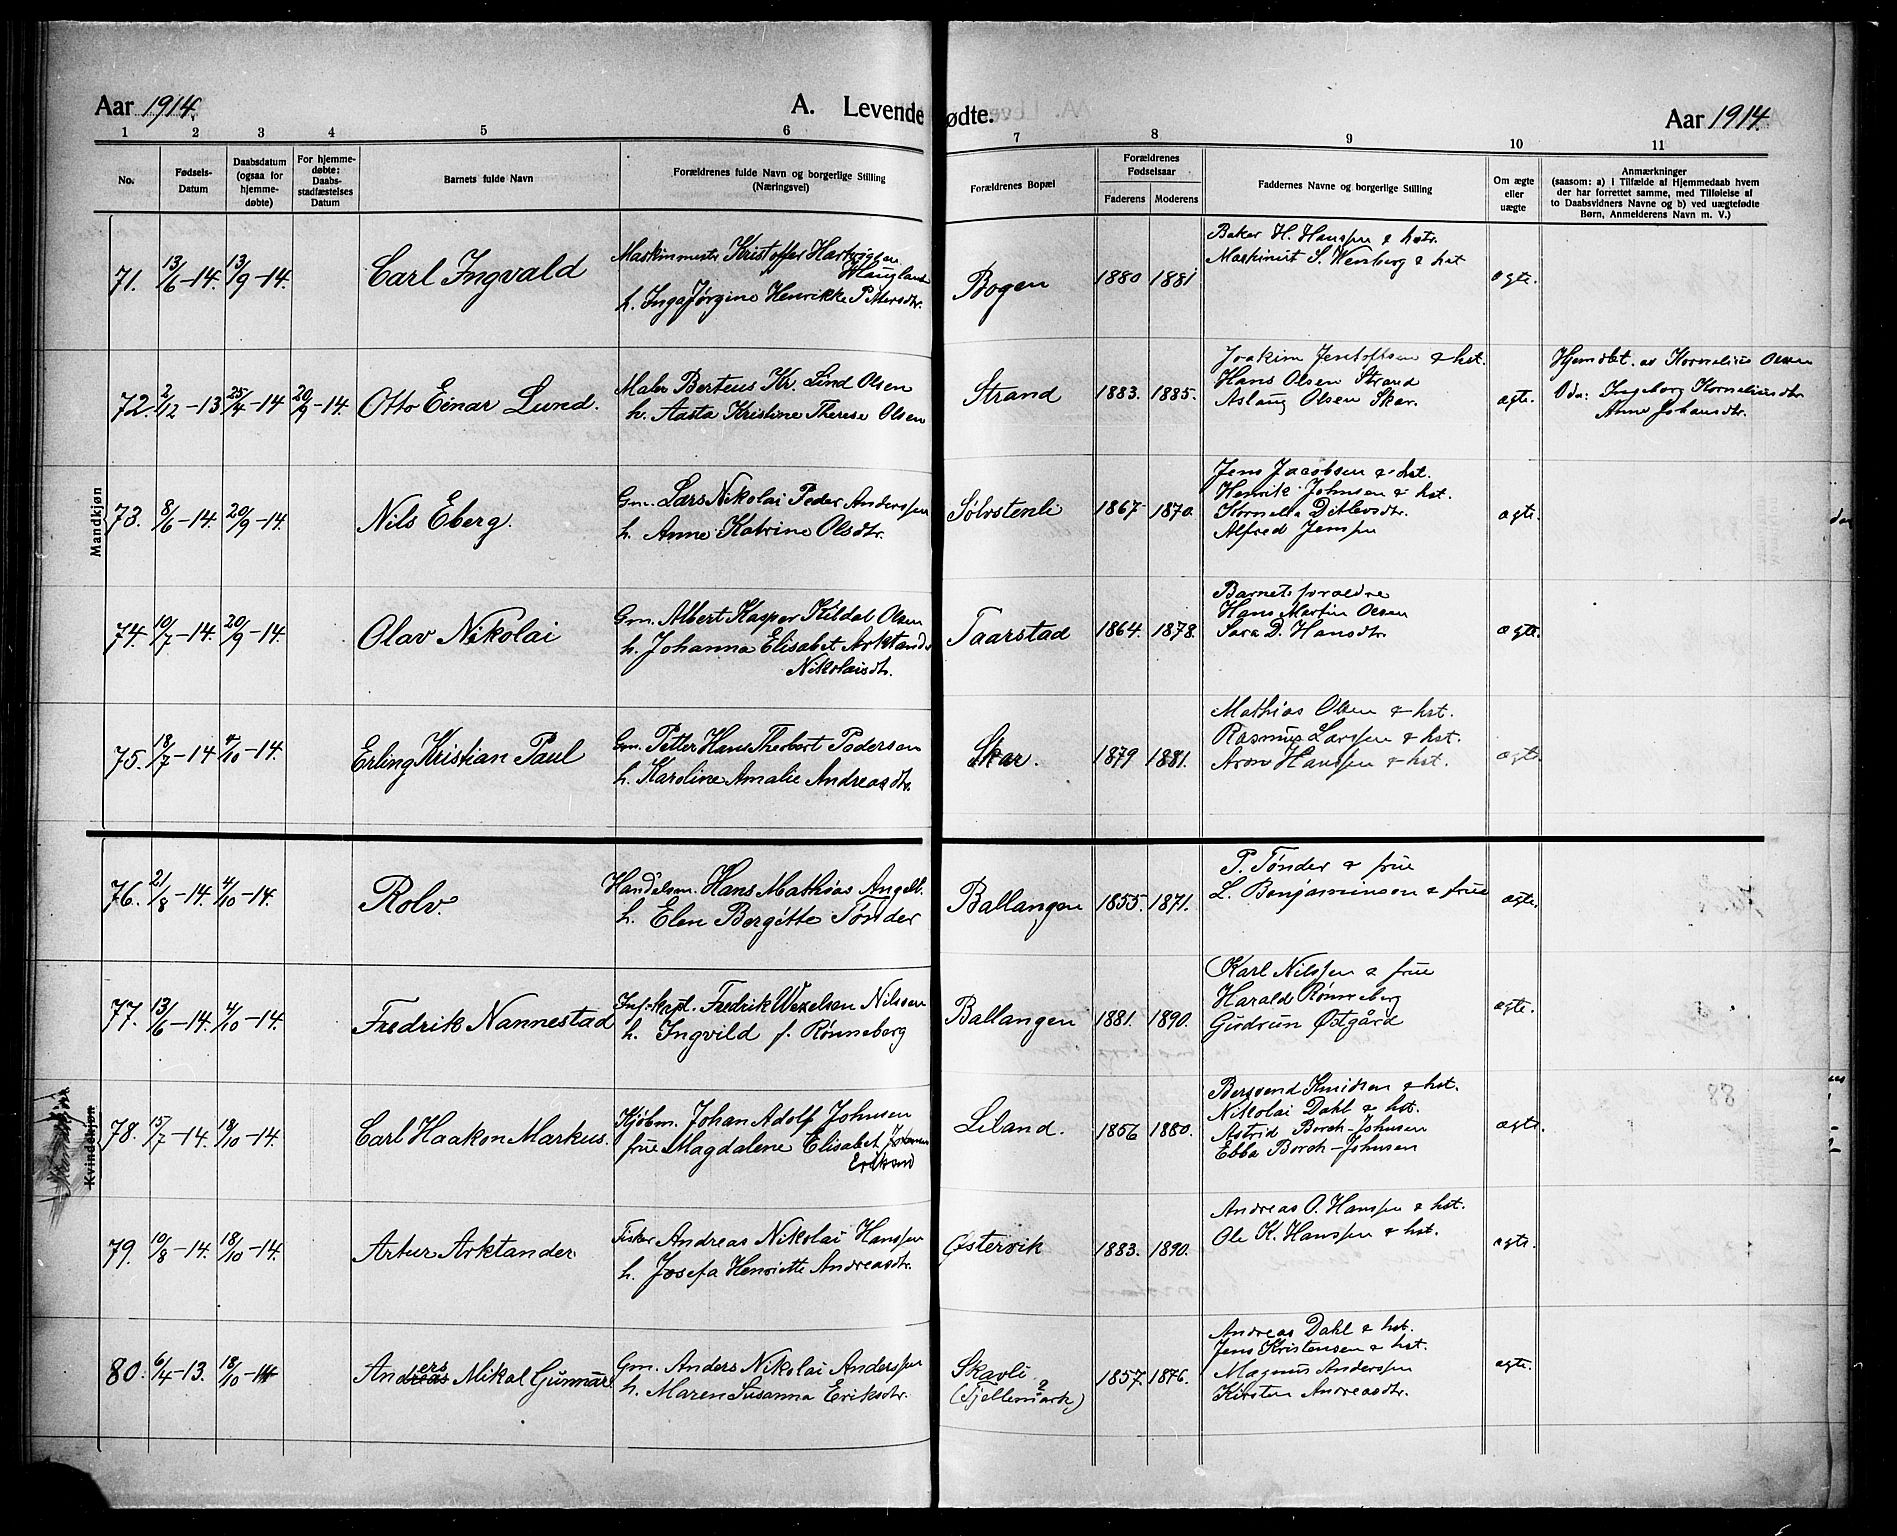 Aar 1914. A. Levende fødte. Aar 1914
1 2 3 4 5 6 7 8 9 10 11
No. Fødsels-Datum Daabsdatum (ogsaa for hjemme-døbte) For hjemme-døbte; Daabs-stadfæstelses Datum Barnets fulde Navn Forældrenes fulde Navn og borgerlige Stilling (Næringsvei) Forældrenes Bopæl Forældrenes Fødselsaar Faderens Moderens Faddernes Navne og borgerlige Stilling Om ægte eller uægte
Anmærkninger
(saasom: a) i Tilfælde af Hjemmedaab hvem
der har forrettet samme, med Tilføielse af
to Daabsvidners Navne og b) ved uægtefødte
Børn, Anmelderens Navn m. V.)
Mandkjøn
71. 13/6-14. 13/9-14. Carl Ingvald
Maskinmester Kristoffer Hartvigsen
Haugland
h. Inga Jørgine Henrikke Petersdtr.
Bogen 1880 1881
Baker H. Hanssen & hstr.
Maskinist S. Wenberg & hst
ægte.
72. 2/12-13 25/4-14 20/9-14. Otto Einar Lund.
Maler Berteus Kr. Lind Olsen
h. Aasta Kristine Therese Olsen
Strand 1883. 1885.
Joakim Jentoftsen & hst.
Hans Olsen Strand
Aslaug Olsen Skar.
ægte.
Hjemdøbt. av Kornelius Olsen
Vidn: Ingeborg Korneliusdtr
Anne Johansdtr.
73. 8/6-14. 20/9-14. Nils Eberg.
Gm. Lars Nikolai Peder Anderssen
h. Anne Katrine Olsdtr.
Sølvstenli 1867 1870.
Jens Jacobsen & hst.
Henrik Johnsen & hst.
Kornelia Ditlevsdtr.
Alfred Jenssen
ægte.
74. 10/7-14. 20/9-14. Olav Nikolai
Gm. Albert Kasper Kildal Olsen
h. Johanna Elisabet Arktander
Nikolaisdtr.
Taarstad 1864. 1878.
Barnets forældre
Hans Martin Olsen
Sara D. Hansdtr.
ægte.
75. 18/7-14 4/10-14. Erling Kristian Paul
Gm. Petter Hans Therbert Pedersen
h. Karoline Amalie Andreasdtr.
Skar. 1879 1881.
Mathias Olsen & hst.
Rasmus Larssen & hst.
Aron Hanssen & hst.
ægte.
Kvindekjøn
76. 21/8-14. 4/10-14. Rolv.
Handelsm. Hans Mathias Angell.
h. Elen Bergitte Tønder
Ballangen 1855. 1871.
P. Tønder & frue
L. Benjaminsen & frue
ægte.
77. 13/6-14. 4/10-14. Fredrik Nannestad
Inf.-kapt. Fredrik Wexelsen Nilssen
h. Ingvild f. Rønneberg
Ballangen 1881. 1890.
Karl Nilssen & frue
Harald Rønneberg
Gudrun Østgård
ægte.
78. 15/7-14. 18/10-14. Carl Haakon Markus.
Kjøbm. Johan Adolf Johnsen
frue Magdalene Elisabet
Liland. 1856 1880.
Bersvend Knudsen & hst.
Nikolai Dahl & hst.
Astrid Borch-Johnsen
Ebba Borch-Johnsen
ægte.
79. 10/8-14. 18/10-14. Artur Arktander
Fisker Andreas Nikolai Hanssen
h. Josefa Henriette Andreasdtr.
Østervik 1883. 1890.
Andreas O. Hanssen & hst.
Ole K. Hanssen & hst.
ægte.
80. 6/4-13. 18/10-14 Anders Mikal Gunnar.
Gm. Anders Nikolai Anderssen
h. Maren Susanna Eriksdtr.
Skavli
(Fjellemark)
1857. 1876.
Andreas Dahl & hst.
Jens Kristensen & hst.
Magnus Anderssen
Kirsten Andreasdtr.
ægte.